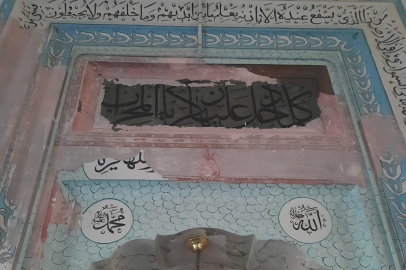 ذا الذي يشفع عنده الا باذنه يعلم ما بين ايديهم وما خلفهم ولا يحيطون
كلما دخل عليها زكريا المحراب
الله
محمد